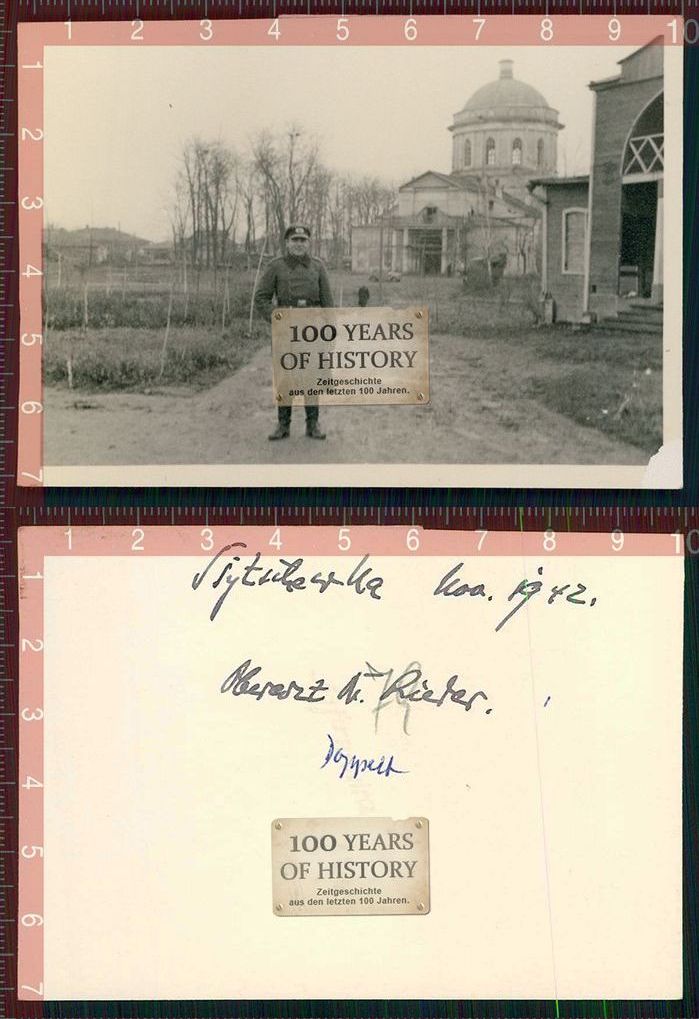 1 2 3 4 5 6 7 8 9 10
1
2
3
4
5
6
7
100 YEARS
OF HISTORY
Zeitgeschichte
aus den letzten 100 Jahren.
1 2 3 4 5 6 7 8 9 10
1
2
3
4
5
6
7
Ssytschewka Nov. 1942.
Oberarzt Dr. Rieder.
Doppelt
100 YEARS
OF HISTORY
Zeitgeschichte
aus den letzten 100 Jahren.